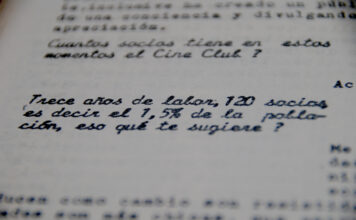 te, inclusive ha creado un púb
de una conciencia y divulgando
apreciación.
Cuantos socios tiene en estos
momentos el Cine Club ?
Ac
Trece años de labor, 120 socios
es decir el 1,5% de la pobla-
ción, eso qué te sugiere ?
Me
de
mi
como cambio